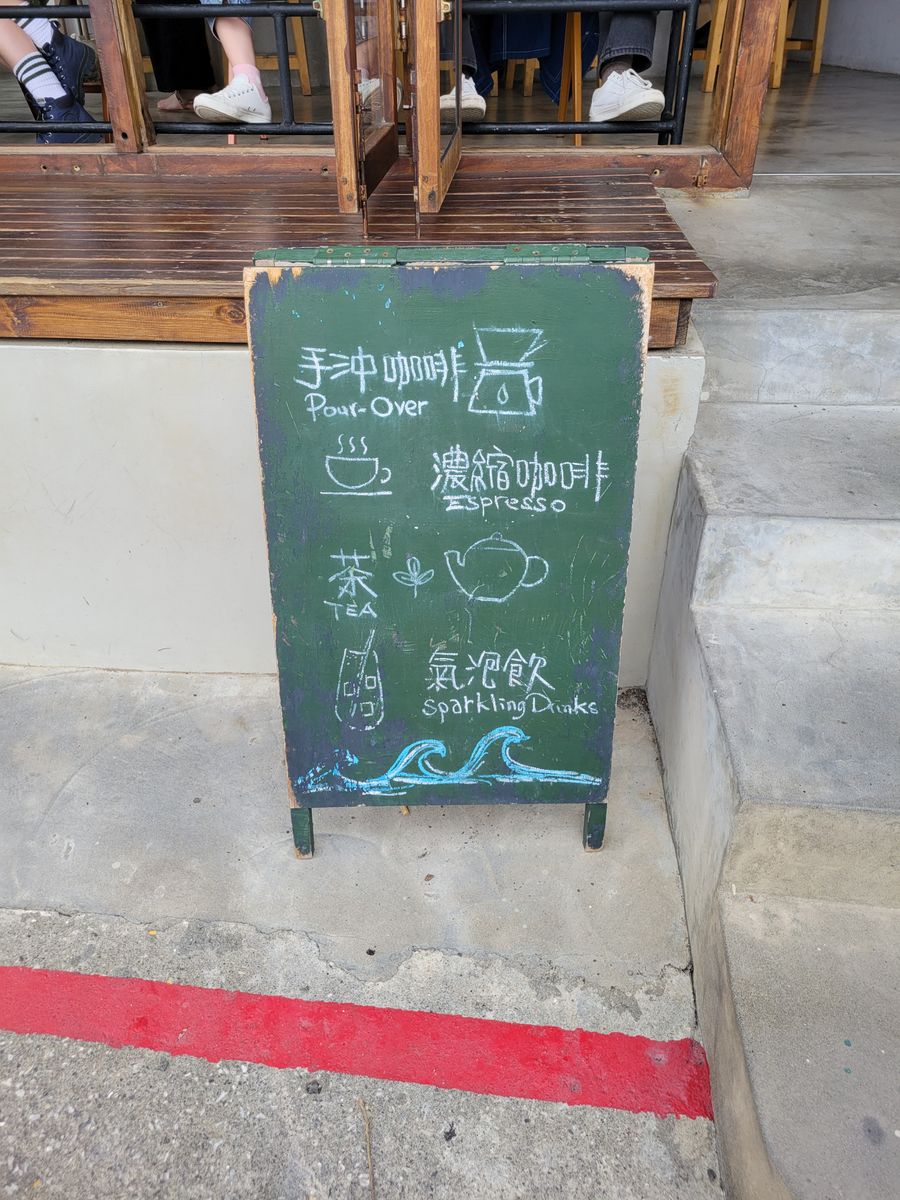 手沖咖啡
Pour-Over
濃縮咖啡
Espresso
茶
TEA
氣泡飲
Sparkling Drinks